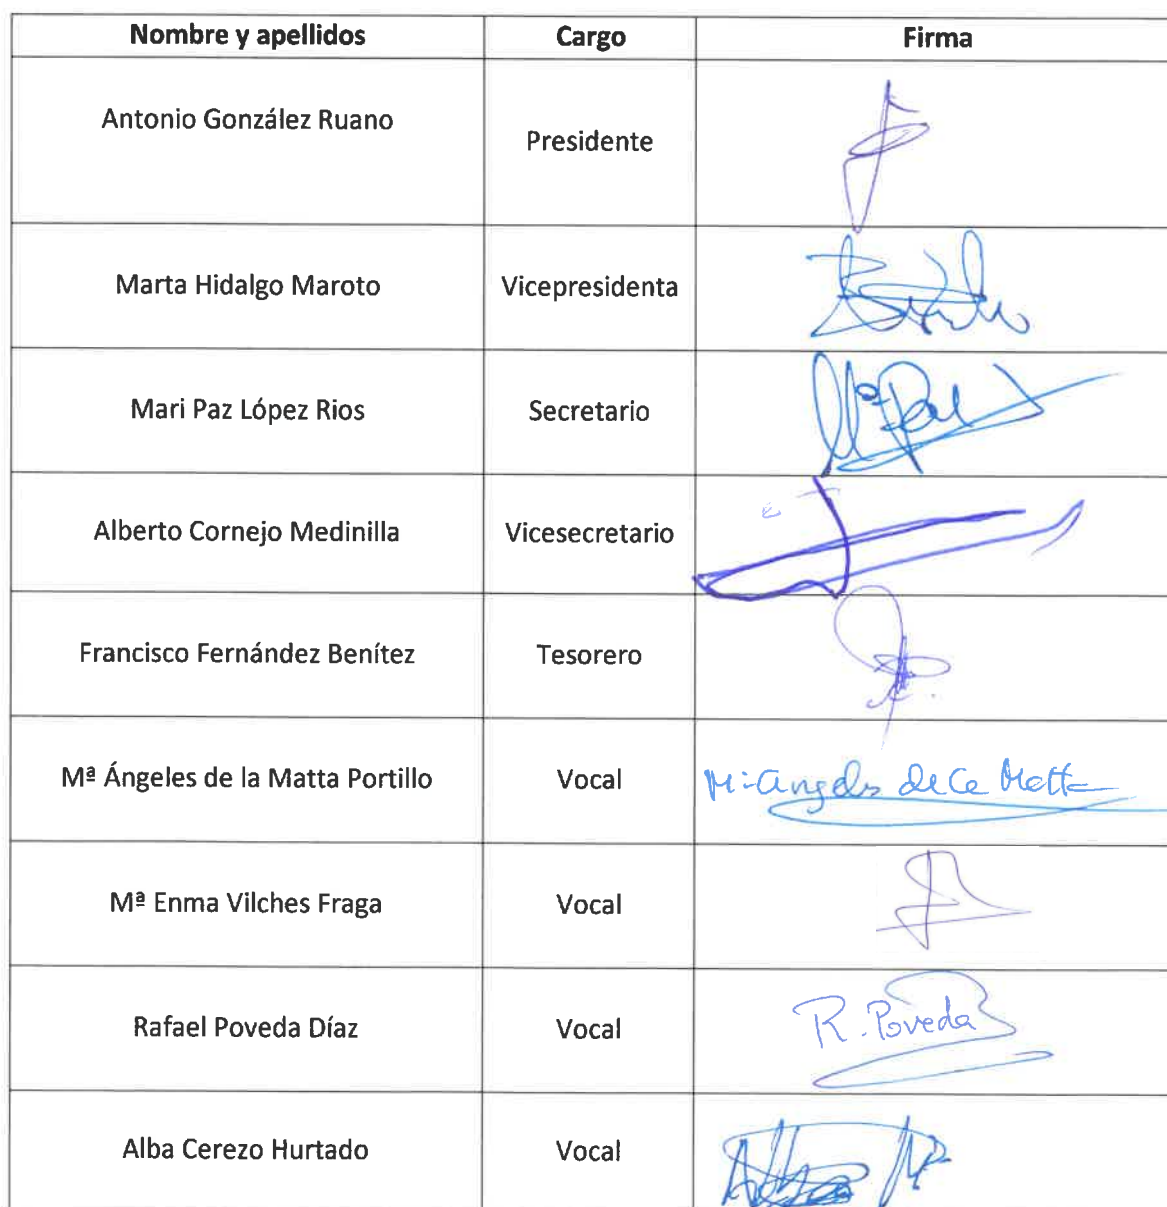 Nombre y apellidos Cargo Firma
Antonio González Ruano Presidente
Marta Hidalgo Maroto Vicepresidenta
Mari Paz López Rios Secretario
Mª Paz
Alberto Cornejo Medinilla Vicesecretario
Francisco Fernández Benítez Tesorero
Mª Ángeles de la Matta Portillo Vocal Mª Angeles de la Matta
Mª Enma Vilches Fraga Vocal
Rafael Poveda Díaz Vocal R. Poveda
Alba Cerezo Hurtado Vocal